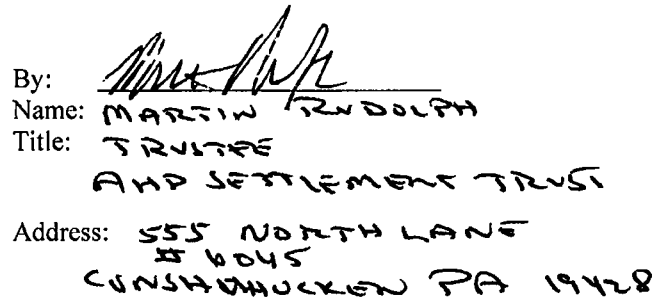 By:
Name: MARTIN RUDOLPH
Title: TRUSTEE
AHP SETTLEMENT TRUST
Address: 555 NORTH LANE
# 6045
CONSHOHOCKEN PA 19428